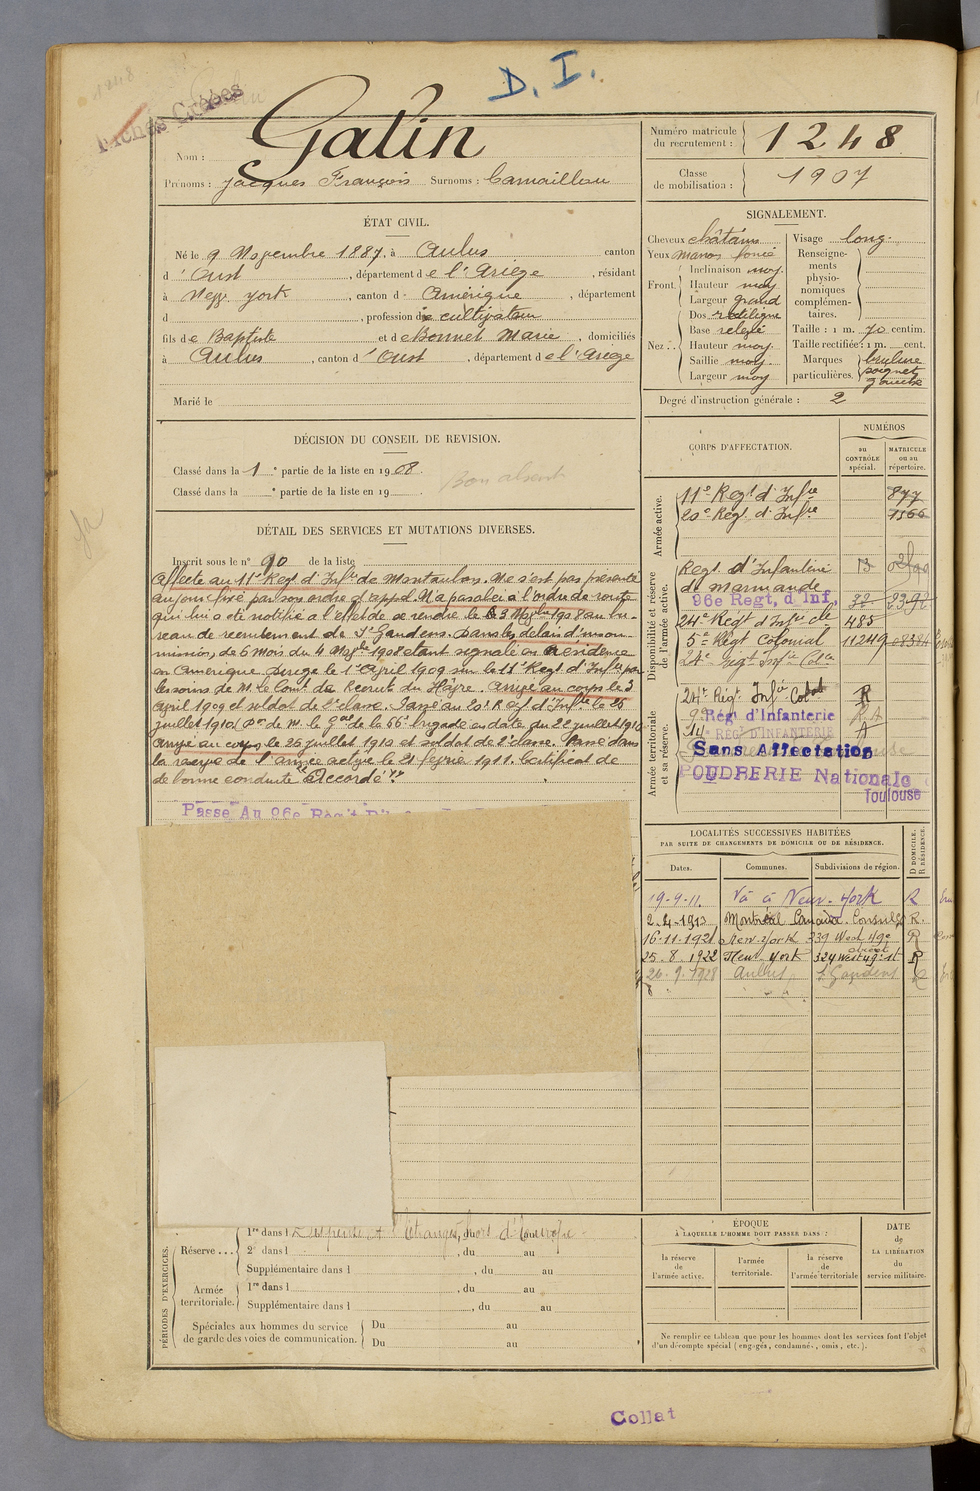 D. I.
1248
Fiches Créées
Nom : Galin
Prénoms : Jacques François Surnoms : Camaillou
Numéro matricule du recrutement : 1248
Classe de mobilisation : 1907
ÉTAT CIVIL.
Né le 9 Novembre 1887, à Aulus canton
d'Oust, département de l'Ariège, résidant
à New york, canton d. Amérique, département
d, profession de cultivateur
fils de Baptiste et de Bonnet Marie, domiciliés
à Aulus, canton d'Oust, département de l'Ariège
Marié le
SIGNALEMENT.
Cheveux châtains
Yeux marron foncé
Front. Inclinaison moy.
Hauteur moy
Largeur grand
Nez .. Dos rectiligne
Base relevé
Hauteur moy.
Saillie moy.
Largeur moy
Visage long
Renseignements physionomiques complémentaires.
Taille : 1 m. 70 centim.
Taille rectifiée : 1 m. cent.
Marques particulières. brulure poignet gauche
Degré d'instruction générale : 2
DÉCISION DU CONSEIL DE REVISION.
Classé dans la 1e partie de la liste en 1908.
Classé dans la e partie de la liste en 19
Bon absent
DÉTAIL DES SERVICES ET MUTATIONS DIVERSES.
Inscrit sous le n° 90 de la liste
Affecté au 11e Regt d'Infie de Montauban. Ne s'est pas présenté
au jour fixé par son ordre d'appel. N'a pas obéi à l'ordre de route
qui lui a été notifié à l'effet de se rendre le 3 Novbre 1908 au bu-
reau de recrutement de St Gaudens. Dans les délais d'insou-
mission, de 6 mois du 4 Novbre 1908 étant signalé en résidence
en Amérique. Dirigé le 1er Avril 1909 sur le 11e Regt d'Infie par
les soins de M. le Comt de Recrutt du Hâvre. Arrivé au corps le 3
Avril 1909 et soldat de 2e classe. Passé au 20e Regt d'Infie le 25
juillet 1910 Don de M. le Gal de la 66e brigade en date du 22 juillet 1910
Arrivé au corps le 25 juillet 1910 et soldat de 2e classe. Passé dans
la réserve de l'armée active le 21 février 1911. Certificat de
de bonne conduite "Accordé".
Passé Au 96e Régt D'I
CORPS D'AFFECTATION.
NUMÉROS
au CONTRÔLE spécial.
MATRICULE ou au répertoire.
Armée active.
11e Regt d'Infie 877
20e Regt d'Infie 1566
Disponibilité et réserve de l'armée active.
Regt d'Infanterie 13
de Marmande
96e Regt, d Inf, 32 2392
24e Regt d'Infie cle 485
5e Régt Colonial 11249 08384
24e Regt Infie Cole
Armée territoriale et sa réserve.
24e Régt. Infie Colole R
Rég' d'Infanterie R A
14 RÉG D'INFANTERIE A
Sans Affectation
POUDRERIE Nationale
Toulouse
LOCALITÉS SUCCESSIVES HABITÉES
PAR SUITE DE CHANGEMENTS DE DOMICILE OU DE RÉSIDENCE.
Dates. Communes. Subdivisions de région. D DOMICILE. R RÉSIDENCE.
19-9-11. Va à New-York R
2-4-1913 Montréal Canada. Consulat R.
16-11-1921 New-York 339 West 49e street R
25-8-1922 New York 324 West 49e st R
26-9-1928 Aulus, St Gaudens
PÉRIODES D'EXERCICES.
Réserve ... 1re dans l Dispensé à l'étranger, hors d'Europe.
2e dans l , du au
Supplémentaire dans l , du au
Armée territoriale. 1re dans l , du au
Supplémentaire dans l , du au
Spéciales aux hommes du service de garde des voies de communication. Du au
Du au
ÉPOQUE
À LAQUELLE L'HOMME DOIT PASSER DANS :
la réserve de l'armée active.
l'armée territoriale.
la réserve de l'armée territoriale
DATE DE LA LIBÉRATION du service militaire.
Ne remplir ce tableau que pour les hommes dont les services font l'objet
d'un décompte spécial (engagés, condamnés, omis, etc.).
Collat